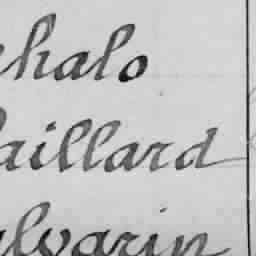 halo
aillard
lvarin